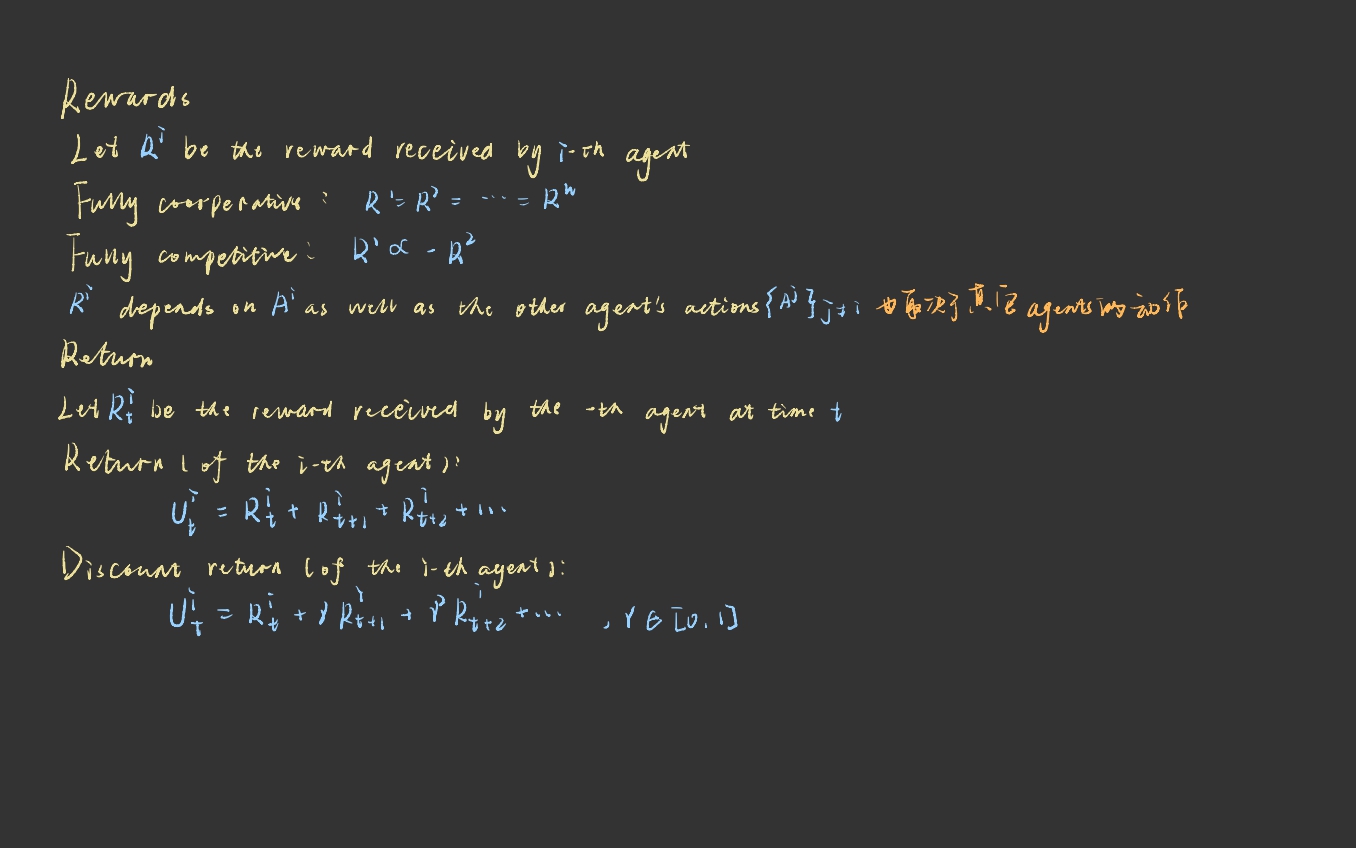 Rewards
Let Rⁱ be the reward received by i-th agent
Fully coorperative: R¹ = R² = ⋯ = Rⁿ
Fully competitive: R¹ ∝ - R²
Rⁱ depends on Aⁱ as well as the other agent's actions {Aʲ}_{j≠i} 也取决了其它agents的动作
Return
Let R_t^i be the reward received by the -th agent at time t
Return (of the i-th agent):
U_t^i = R_t^i + R_{t+1}^i + R_{t+2}^i + ⋯
Discount return (of the i-th agent):
U_t^i = R_t^i + γ R_{t+1}^i + γ² R_{t+2}^i + ⋯ , γ ∈ [0, 1]